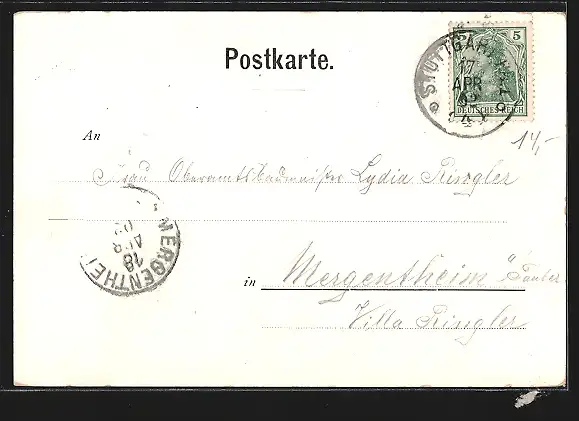 Postkarte.
5
STUTTGART
17
APR
DEUTSCHES REICH
14,-
An
Frau Oberamtsbaumeister Lydia Ringler
MERGENTHEIM
18
APR
in Mergentheim "Tauber
Villa Ringler